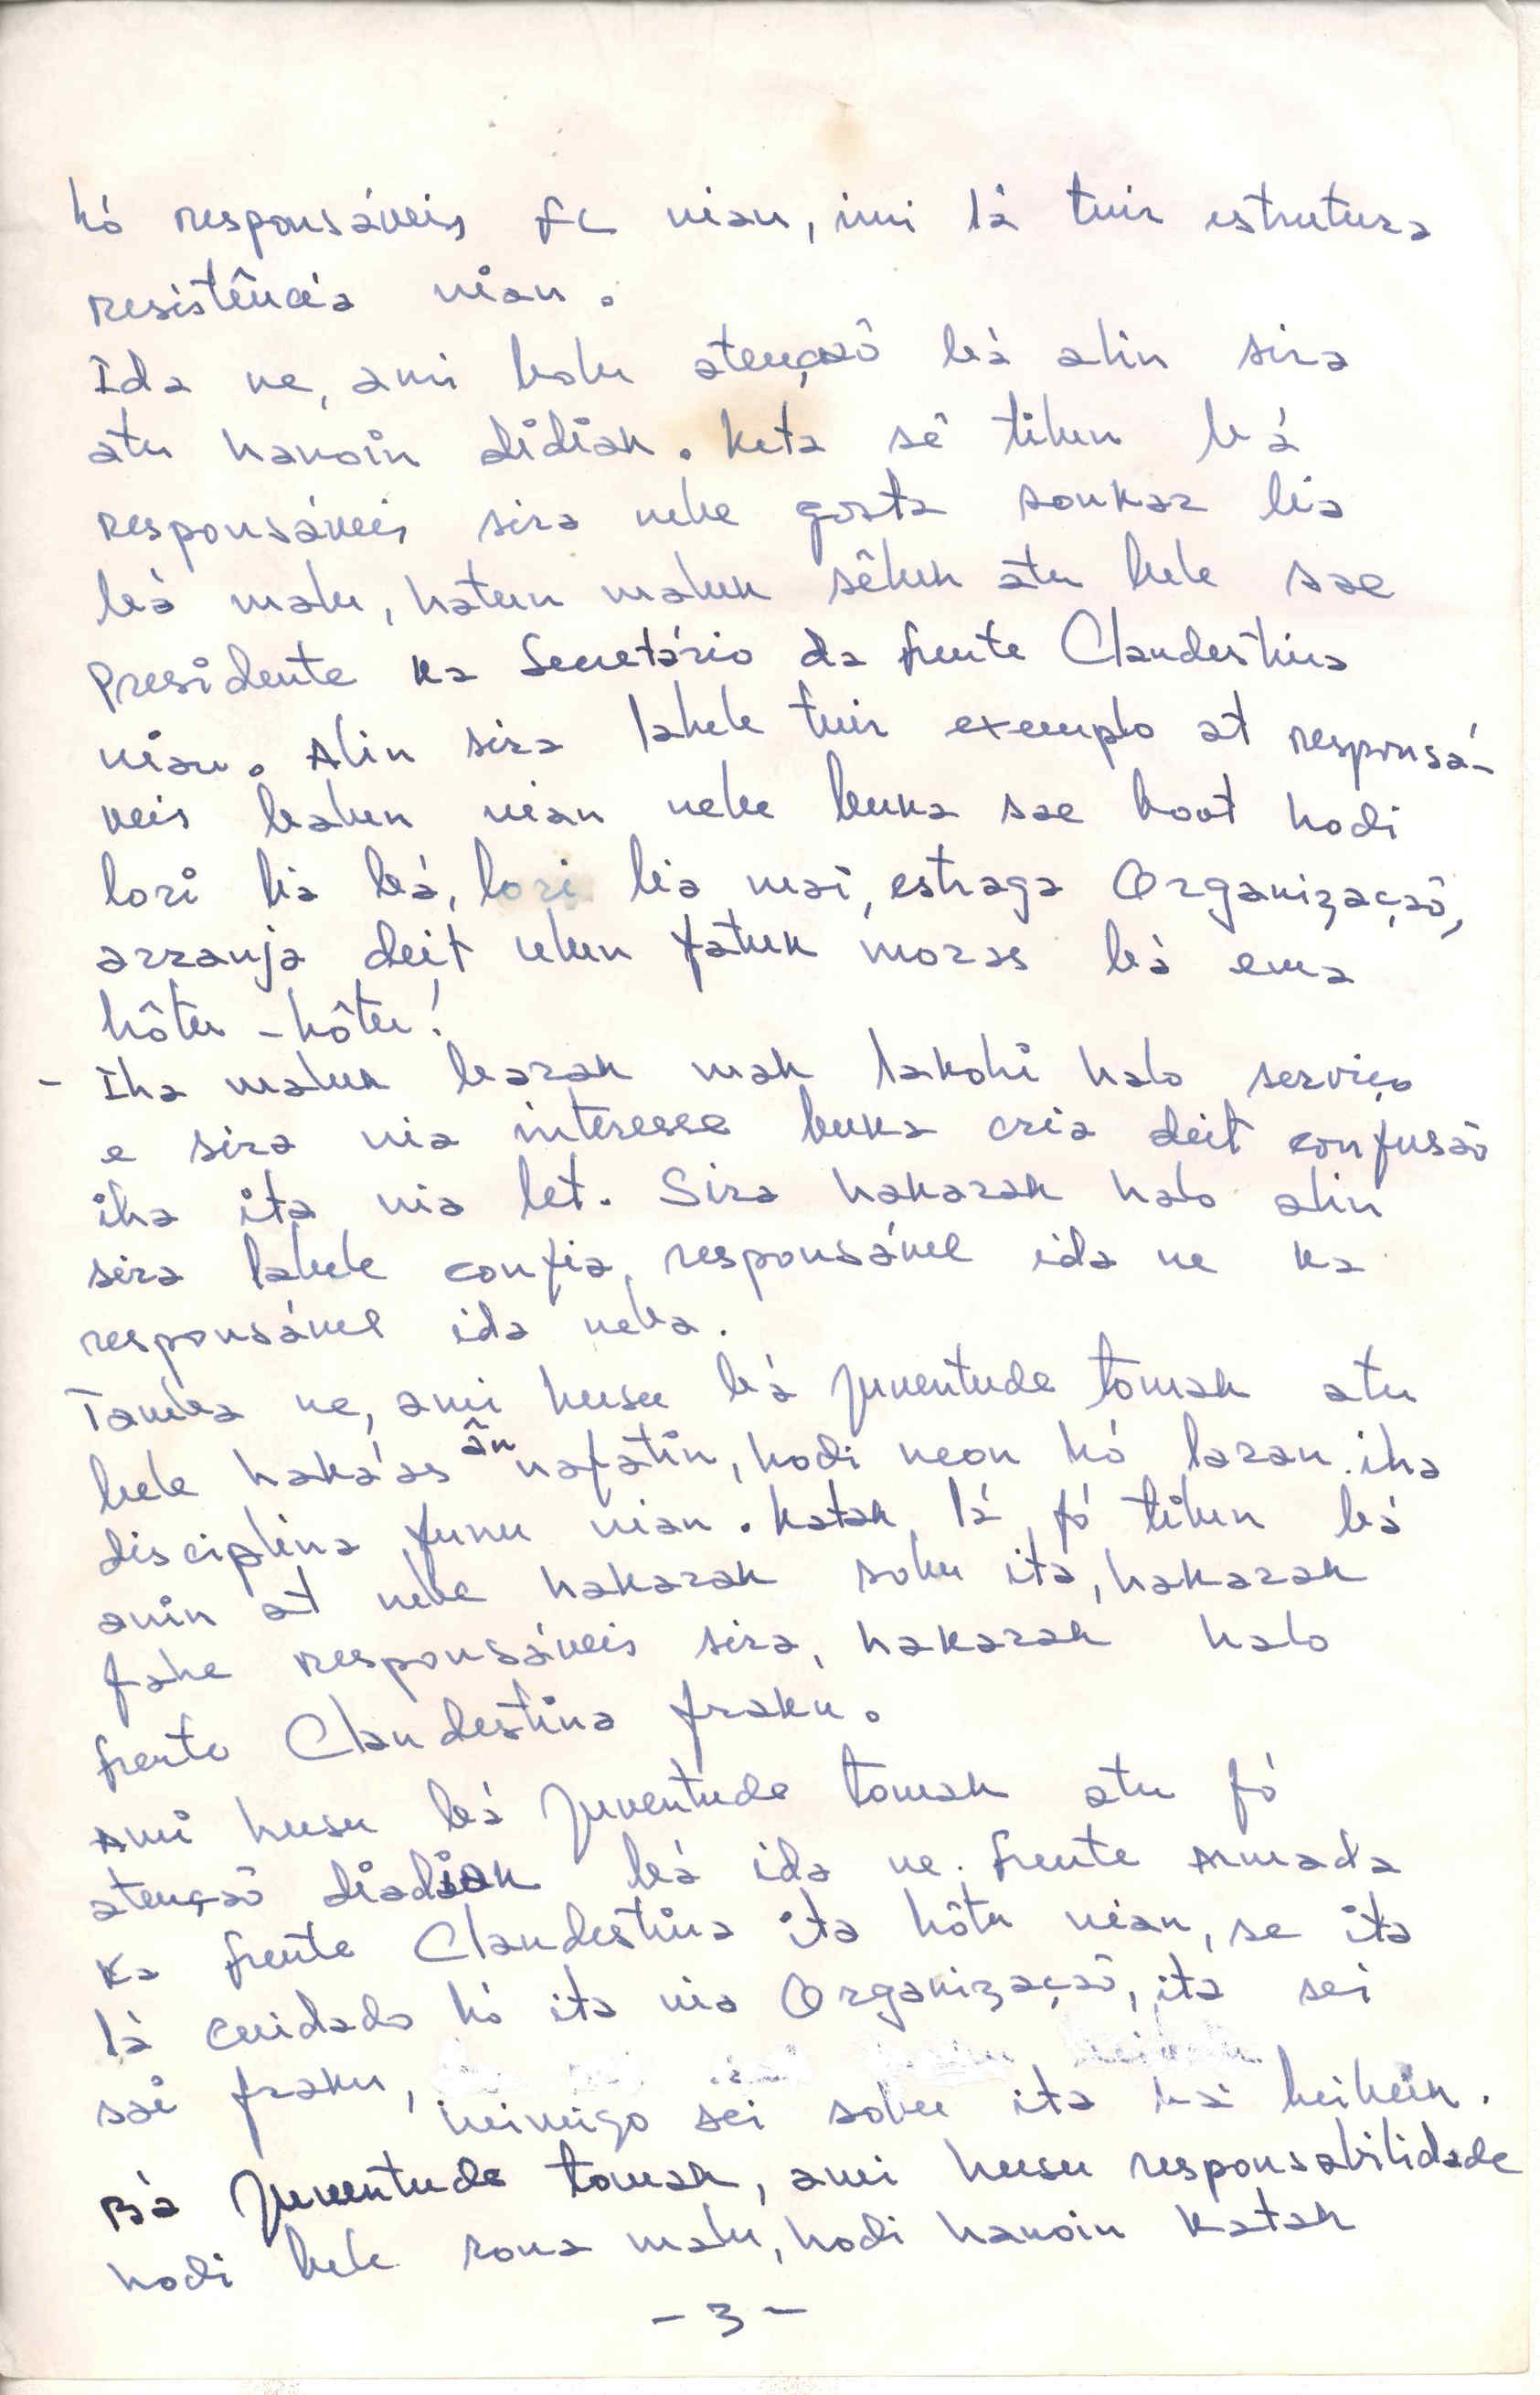 hó responsáveis FC nian, imi lá tuir estrutura
resistência nian.
Ida ne, ami bolu atençaõ bá alin sira
atu hanoin didiak. Keta sê tilun bá
responsáveis sira nebe gosta soukar lia
bá malu, hatun maluk sêluk atu bele sae
Presidente ka Secretário da Frente Clandestina
nian. Alin sira labele tuir exemplo at responsá-
veis balun nian nebe buka sae boot hodi
lori lia bá, lori lia mai, estraga Organizaçaõ,
arranja deit ulun fatuk moras bá ema
hôtu-hôtu!
- Iha maluk barak mak lakohi halo serviço
e sira nia interesse buka cria deit confusaõ
iha ita nia let. Sira hakarak halo alin
sira labele confia, responsável ida ne ka
responsável ida neba.
Tamba ne, ami husu bá juventude tomak atu
bele haká'as ân nafatin, hodi neon hó laran iha
disciplina funu nian. Katak lá fó tilun bá
anin at nebe hakarak sobu ita, hakarak
fahe responsáveis sira, hakarak halo
Frente Clandestina fraku.
Ami husu bá Juventude tomak atu fó
atençaõ diadiak bá ida ne. Frente Armada
ka Frente Clandestina ita hôtu nian, se ita
lá cuidado hó ita nia Organizaçaõ, ita sei
sai fraku, inimigo sei sobu ita ka'i beibeik.
Bá Juventude tomak, ami husu responsabilidade
hodi bele rona malu, hodi hanoin katak
- 3 -